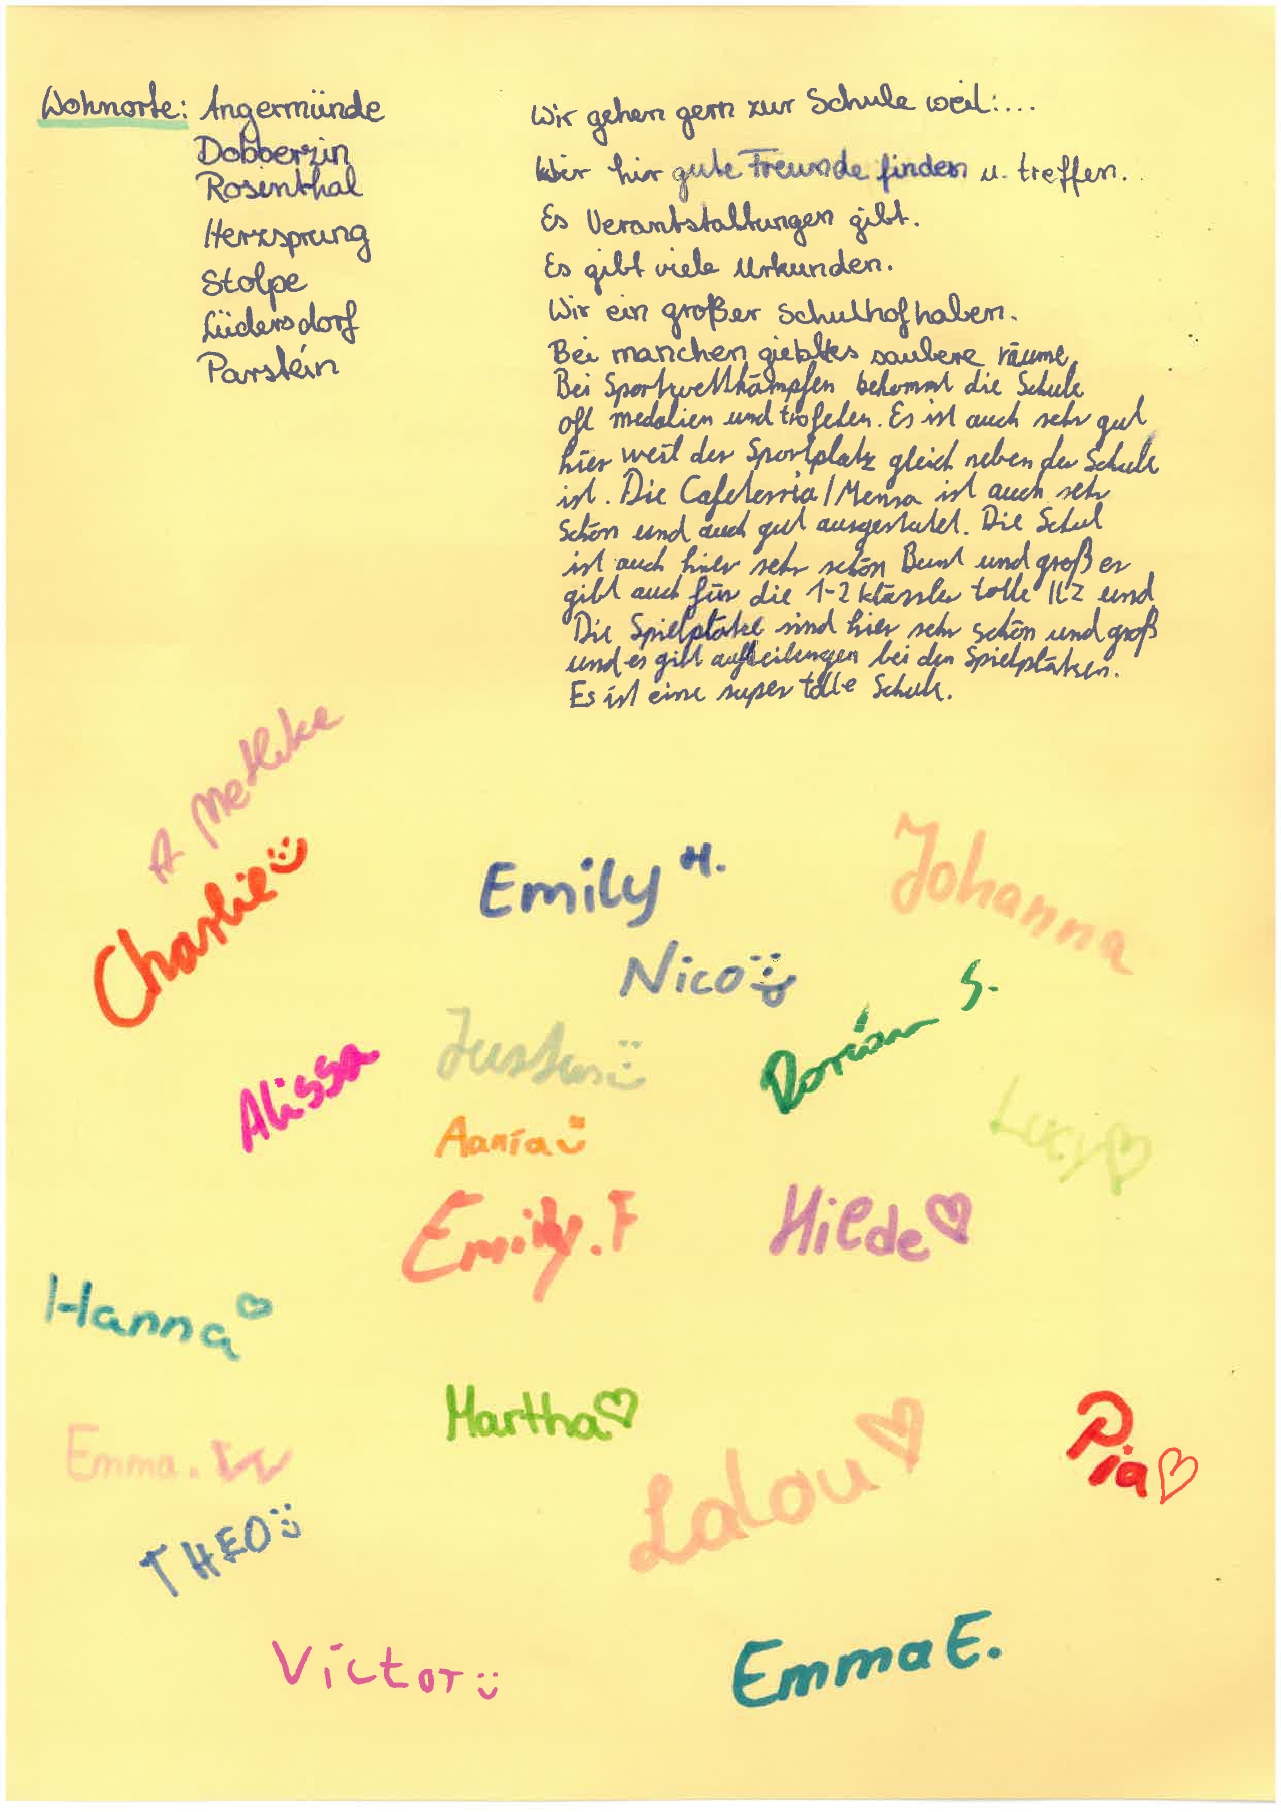 Wohnorte: Angermünde
Dobberzin
Rosenthal
Herzsprung
Stolpe
Lüdersdorf
Parstein
Wir gehen gern zur Schule weil:...
Wir hir gute Freunde finden u. treffen.
Es Verantstaltungen gibt.
Es gibt viele Urkunden.
Wir ein großer Schulhof haben.
Bei manchen giebt es saubere räume.
Bei Sportwettkämpfen bekommt die Schule
oft medalien und trofehen. Es ist auch sehr gut
hier weil der Sportplatz gleich neben der Schule
ist. Die Cafeterria/Mensa ist auch sehr
schön und auch gut ausgestatet. Die Schul
ist auch hier sehr schön Bunt und groß er
gibt auch für die 1-2 klässler tolle ILZ und
Die Spielplätze sind hier sehr schön und groß
und es gibt aufteilungen bei den Spielplätzen.
Es ist eine super tolle Schule.
A Methke
Charlie
Emily H.
Johanna
Nico
Dorian S.
Justus
Alissa
Aania
Lucy
Emily.F
Hilde
Hanna
Martha
Pia
Emma.W
Lalou
THEO
Victor
Emma E.